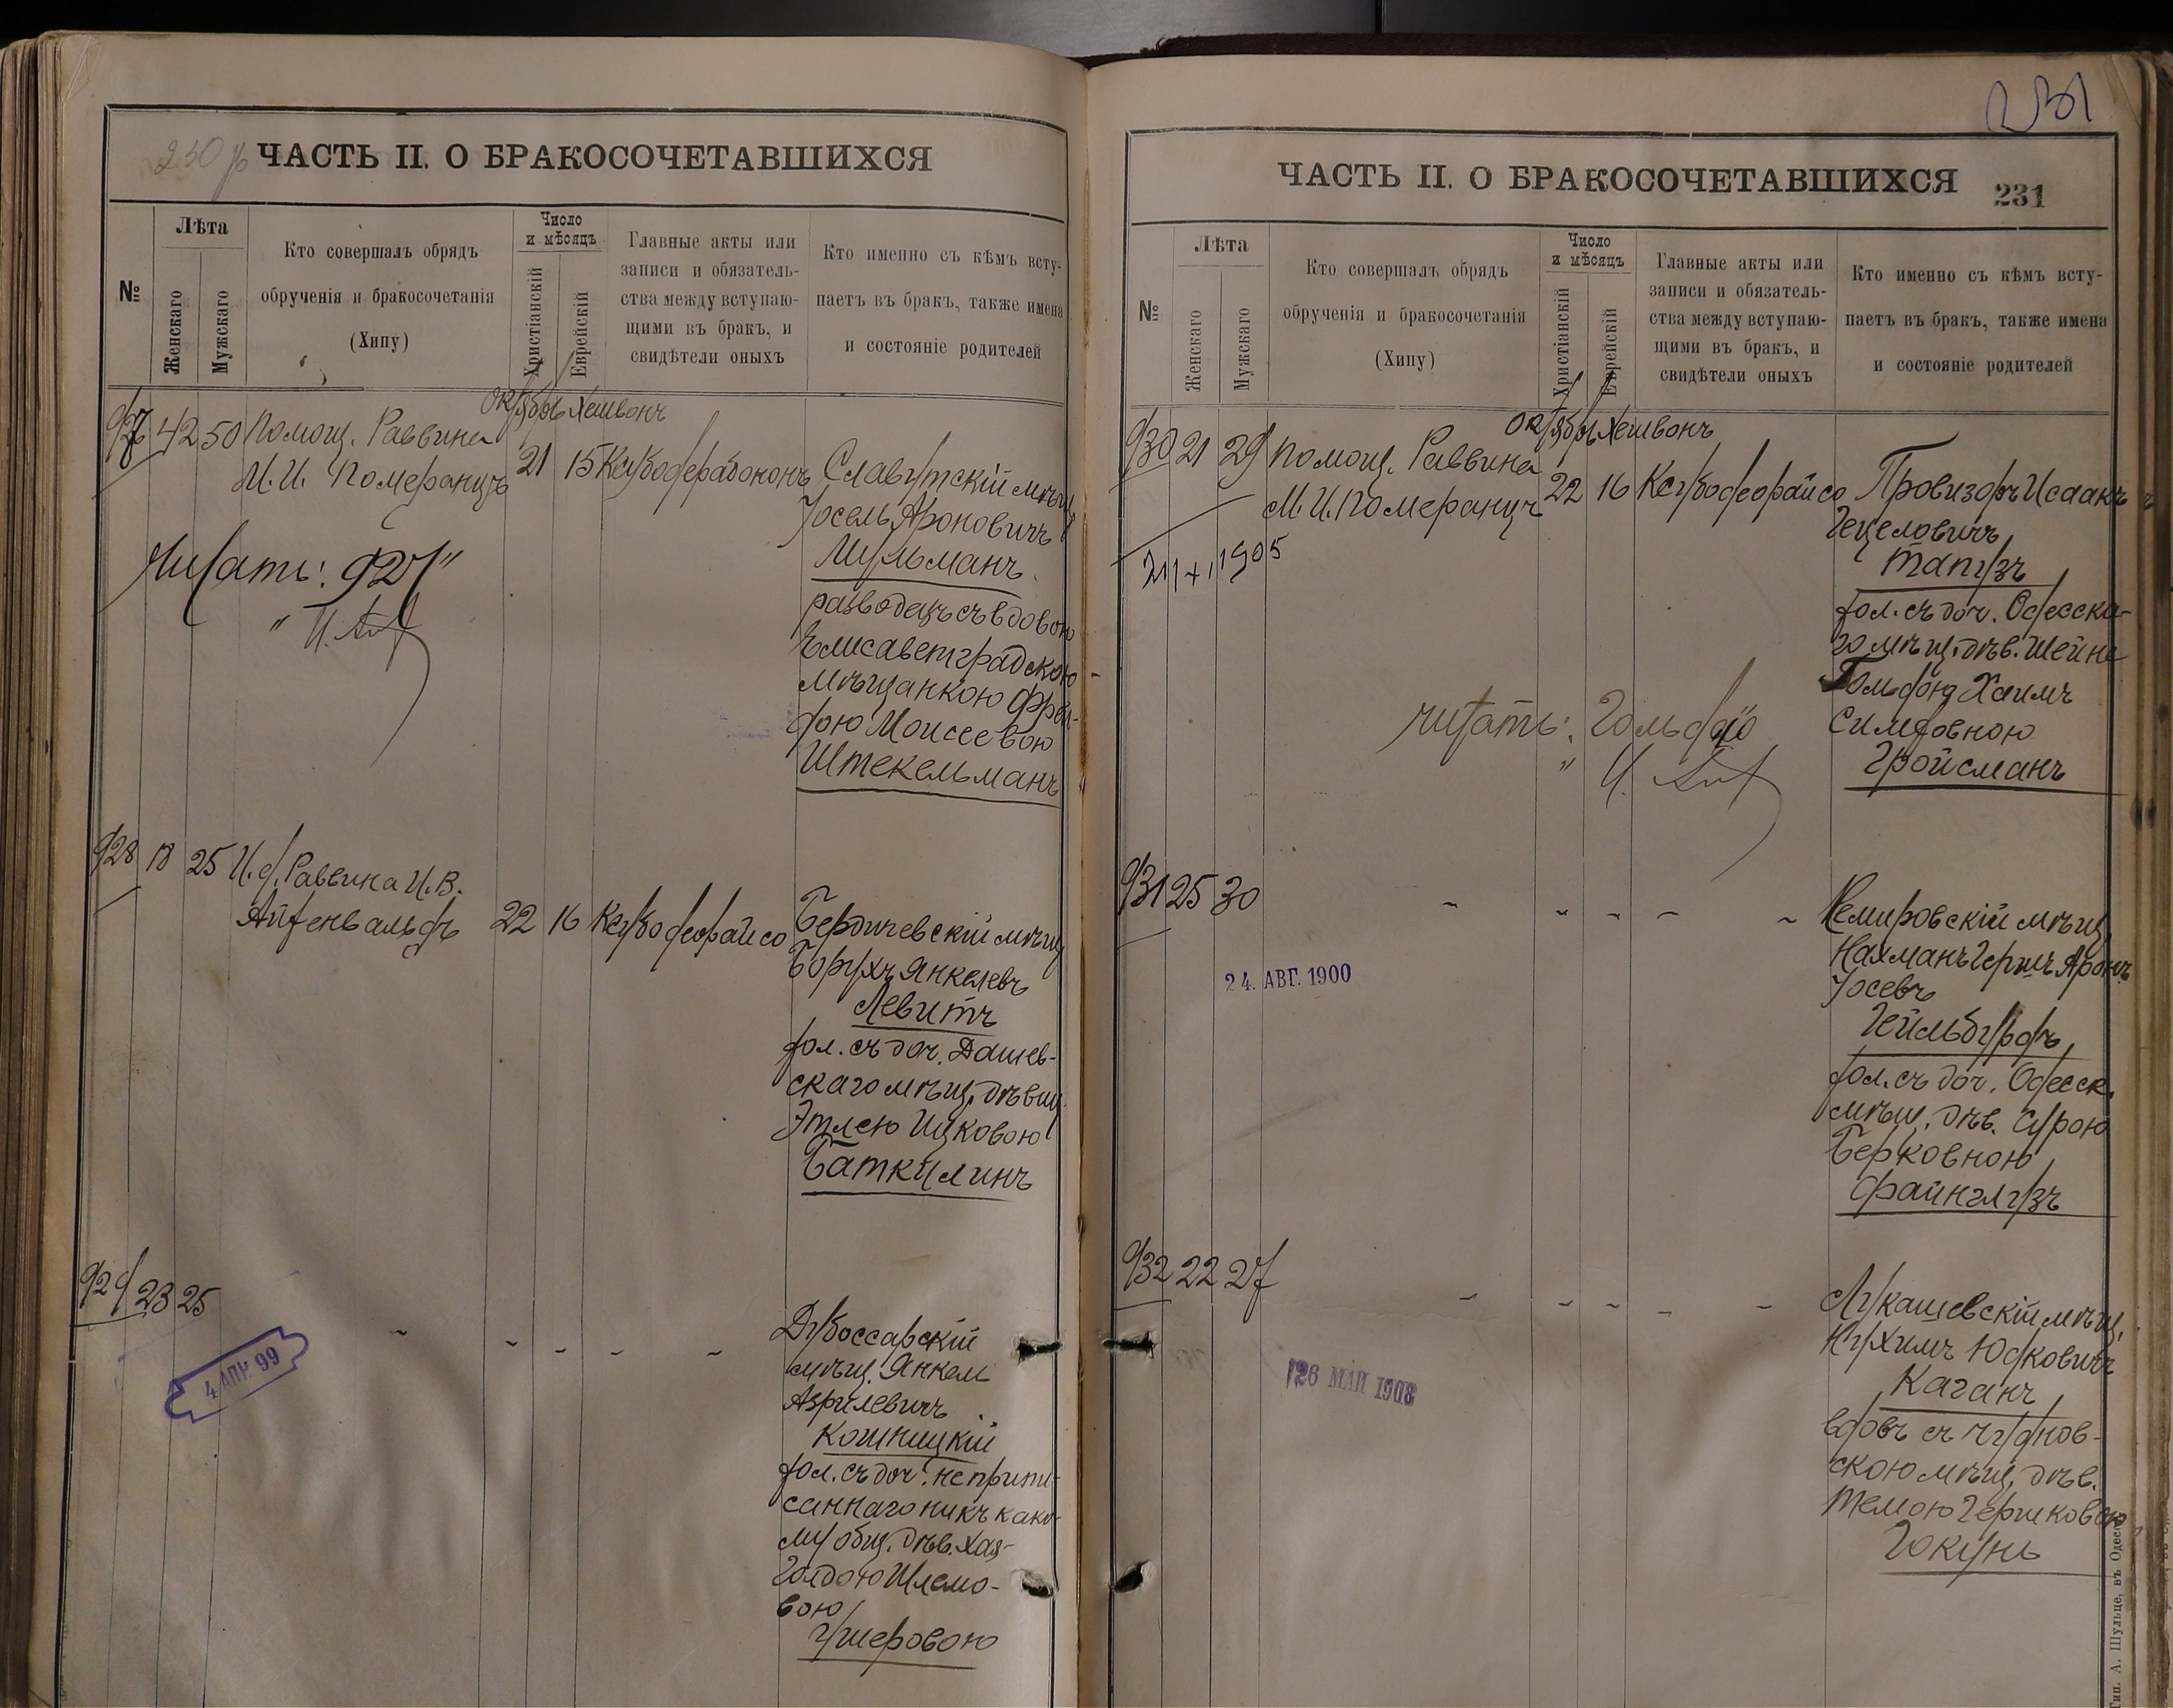 250 об
ЧАСТЬ II. О БРАКОСОЧЕТАВШИХСЯ
№
Лѣта
Женскаго
Мужскаго
Кто совершалъ обрядъ
обрученія и бракосочетанія
(Хипу)
Число
и мѣсяцъ
Христіанскій
Еврейскій
Главные акты или
записи и обязатель-
ства между вступаю-
щими въ бракъ, и
свидѣтели оныхъ
Кто именно съ кѣмъ всту-
паетъ въ бракъ, также имена
и состояніе родителей
927 42 50 Помощ. Раввина
Октябрь Хешвонъ
И. И. Померанцъ 21 15 Ксубо
Славутскій мѣщ.
Іосель Ароновичъ
Шульманъ
разводецъ съ вдовою
Елисаветградскою
мѣщанкою Фрей-
дою Моисеевою
Штекельманъ
Читать: "927"
928 18 25 И. д. Раввина И. В.
Айзенвальдъ 22 16 Ксубо деорайсо
Бердичевскій мѣщ.
Борухъ Янкелевъ
Левитъ
хол. съ доч. Дашев-
скаго мѣщ. дѣвиц.
Этлею Ицковою
Баткилинъ
929 23 25
4 АПР. 99
- - - - -
Дубоссарскій
мѣщ. Янкель
Азрилевичъ
Кошницкій
хол. съ доч. неприпи-
саннаго ни къ како-
му общ. дѣв. Хая-
Голдою Шлемо-
вою
Ушеровою
231
ЧАСТЬ II. О БРАКОСОЧЕТАВШИХСЯ
231
№
Лѣта
Женскаго
Мужскаго
Кто совершалъ обрядъ
обрученія и бракосочетанія
(Хипу)
Число
и мѣсяцъ
Христіанскій
Еврейскій
Главные акты или
записи и обязатель-
ства между вступаю-
щими въ бракъ, и
свидѣтели оныхъ
Кто именно съ кѣмъ всту-
паетъ въ бракъ, также имена
и состояніе родителей
930 21 29 Помощ. Раввина
Октябрь Хешвонъ
М. И. Померанцъ 22 16 Ксубо деорайсо
21/X 1905
Провизоръ Исаакъ
Гецеловичъ
Тапузъ
хол. съ доч. Одесска-
го мѣщ. дѣв. Шейне
Гольдою Хаимъ
Симховною
Гройсманъ
читать: Гольдою
931 25 30
- - - - -
24. АВГ. 1900
Немировскій мѣщ.
Нахманъ Гершъ Аронъ
Іосевъ
Гейльбурдъ
хол. съ доч. Одесск.
мѣщ. дѣв. Сурою
Берковною
Файнглузъ
932 22 27
- - - - -
26 МАЙ 1903
Лукашевскій мѣщ.
Нухимъ Юдковичъ
Каганъ
вдовъ съ Чуднов-
скою мѣщ. дѣв.
Темою Гершковою
Гокунь
Тип. А. Шульце, въ Одессѣ